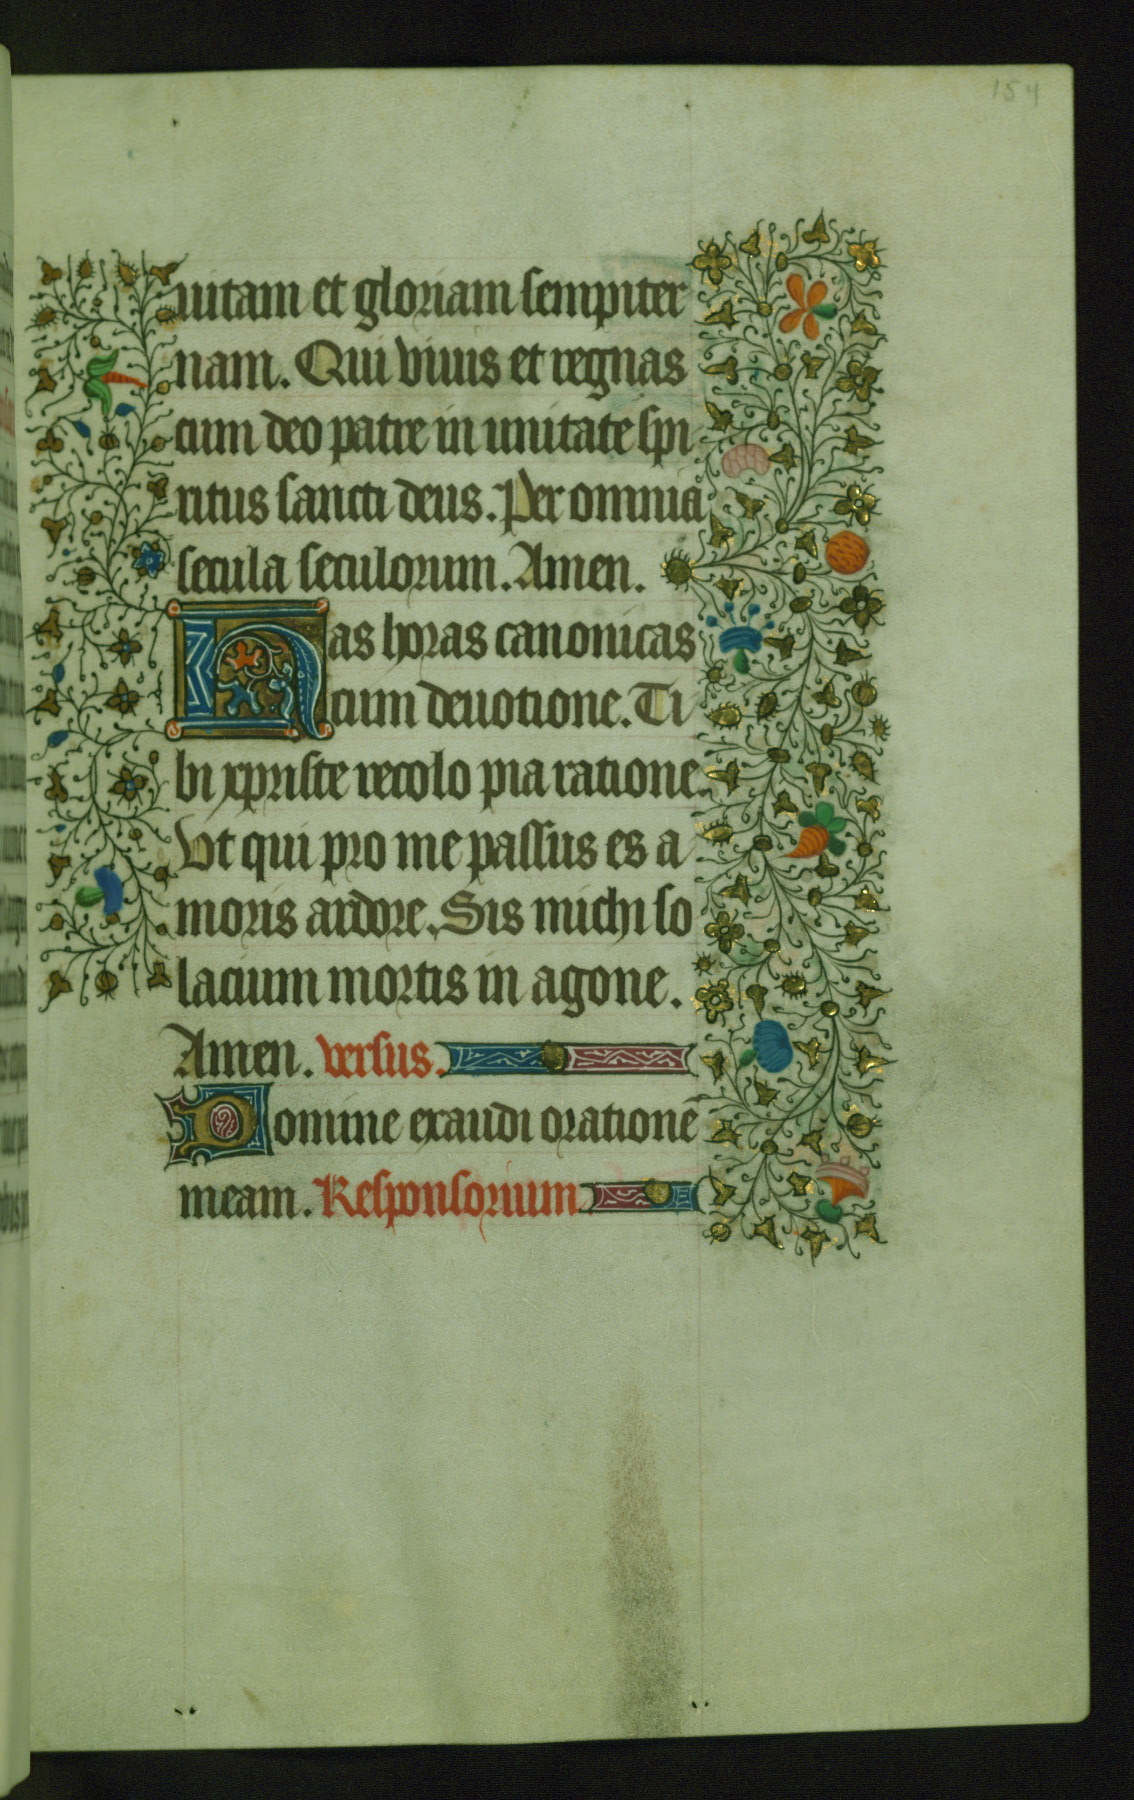 154
uitam et gloriam sempiter
nam. Qui viuis et regnas
cum deo patre in unitate spi
ritus sancti deus. Per omnia
secula seculorum. Amen.
Has horas canonicas
cum deuotione. Ti
bi xpriste recolo pia ratione.
Vt qui pro me passus es a
moris ardore. Sis michi so
lacium mortis in agone.
Amen. versus.
Domine exaudi oratione
meam. Responsorium